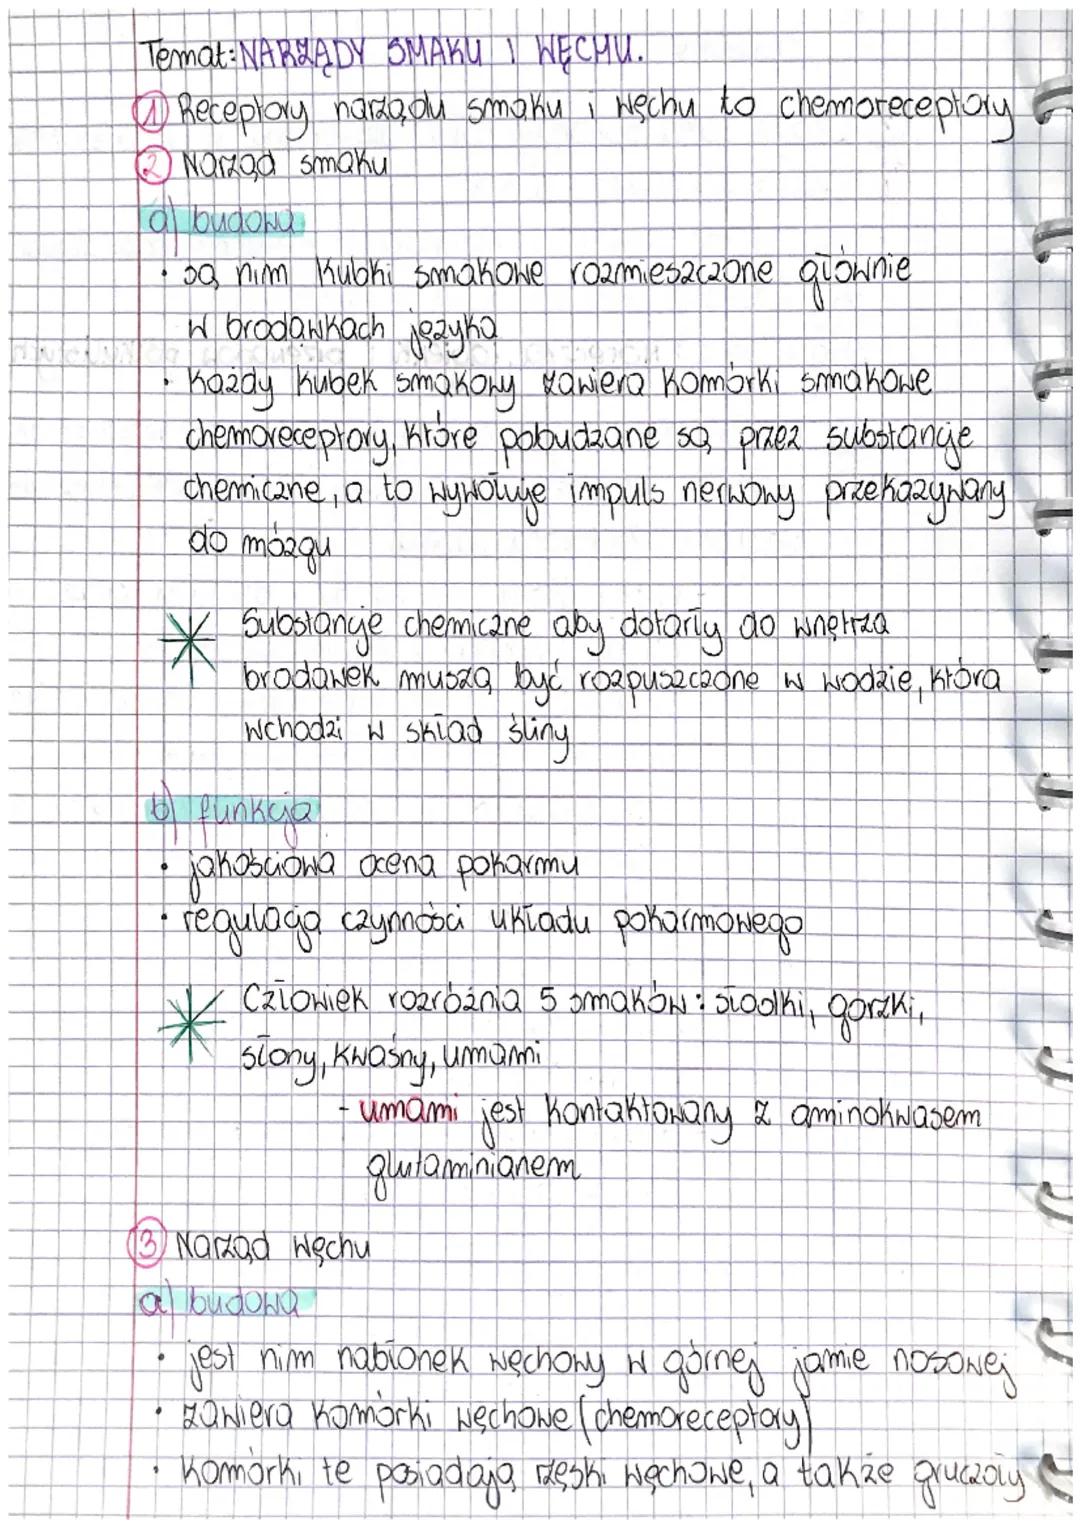 Temat: NARZĄDY SMAKU I WĘCHU.
1 Receptory narządu smaku i węchu to chemoreceptory
2 Narząd smaku
a) budowa
• są nim kubki smakowe rozmieszczone głównie
w brodawkach języka
• każdy kubek smakowy zawiera komórki smakowe
chemoreceptory, które pobudzane są przez substancje
chemiczne, a to wywołuje impuls nerwowy przekazywany
do mózgu
Substancje chemiczne aby dotarły do wnętrza
brodawek muszą być rozpuszczone w wodzie, która
wchodzi w skład śliny
b) funkcja
• jakościowa ocena pokarmu
• regulacja czynności układu pokarmowego
Człowiek rozróżnia 5 smaków: słodki, gorzki,
słony, kwaśny, umami
- umami jest kontaktowany z aminokwasem
glutaminianem
3 Narząd węchu
a) budowa
• jest nim nabłonek węchowy w górnej jamie nosowej
• zawiera komórki węchowe (chemoreceptory)
• komórki te posiadają rzęski węchowe, a także gruczoły